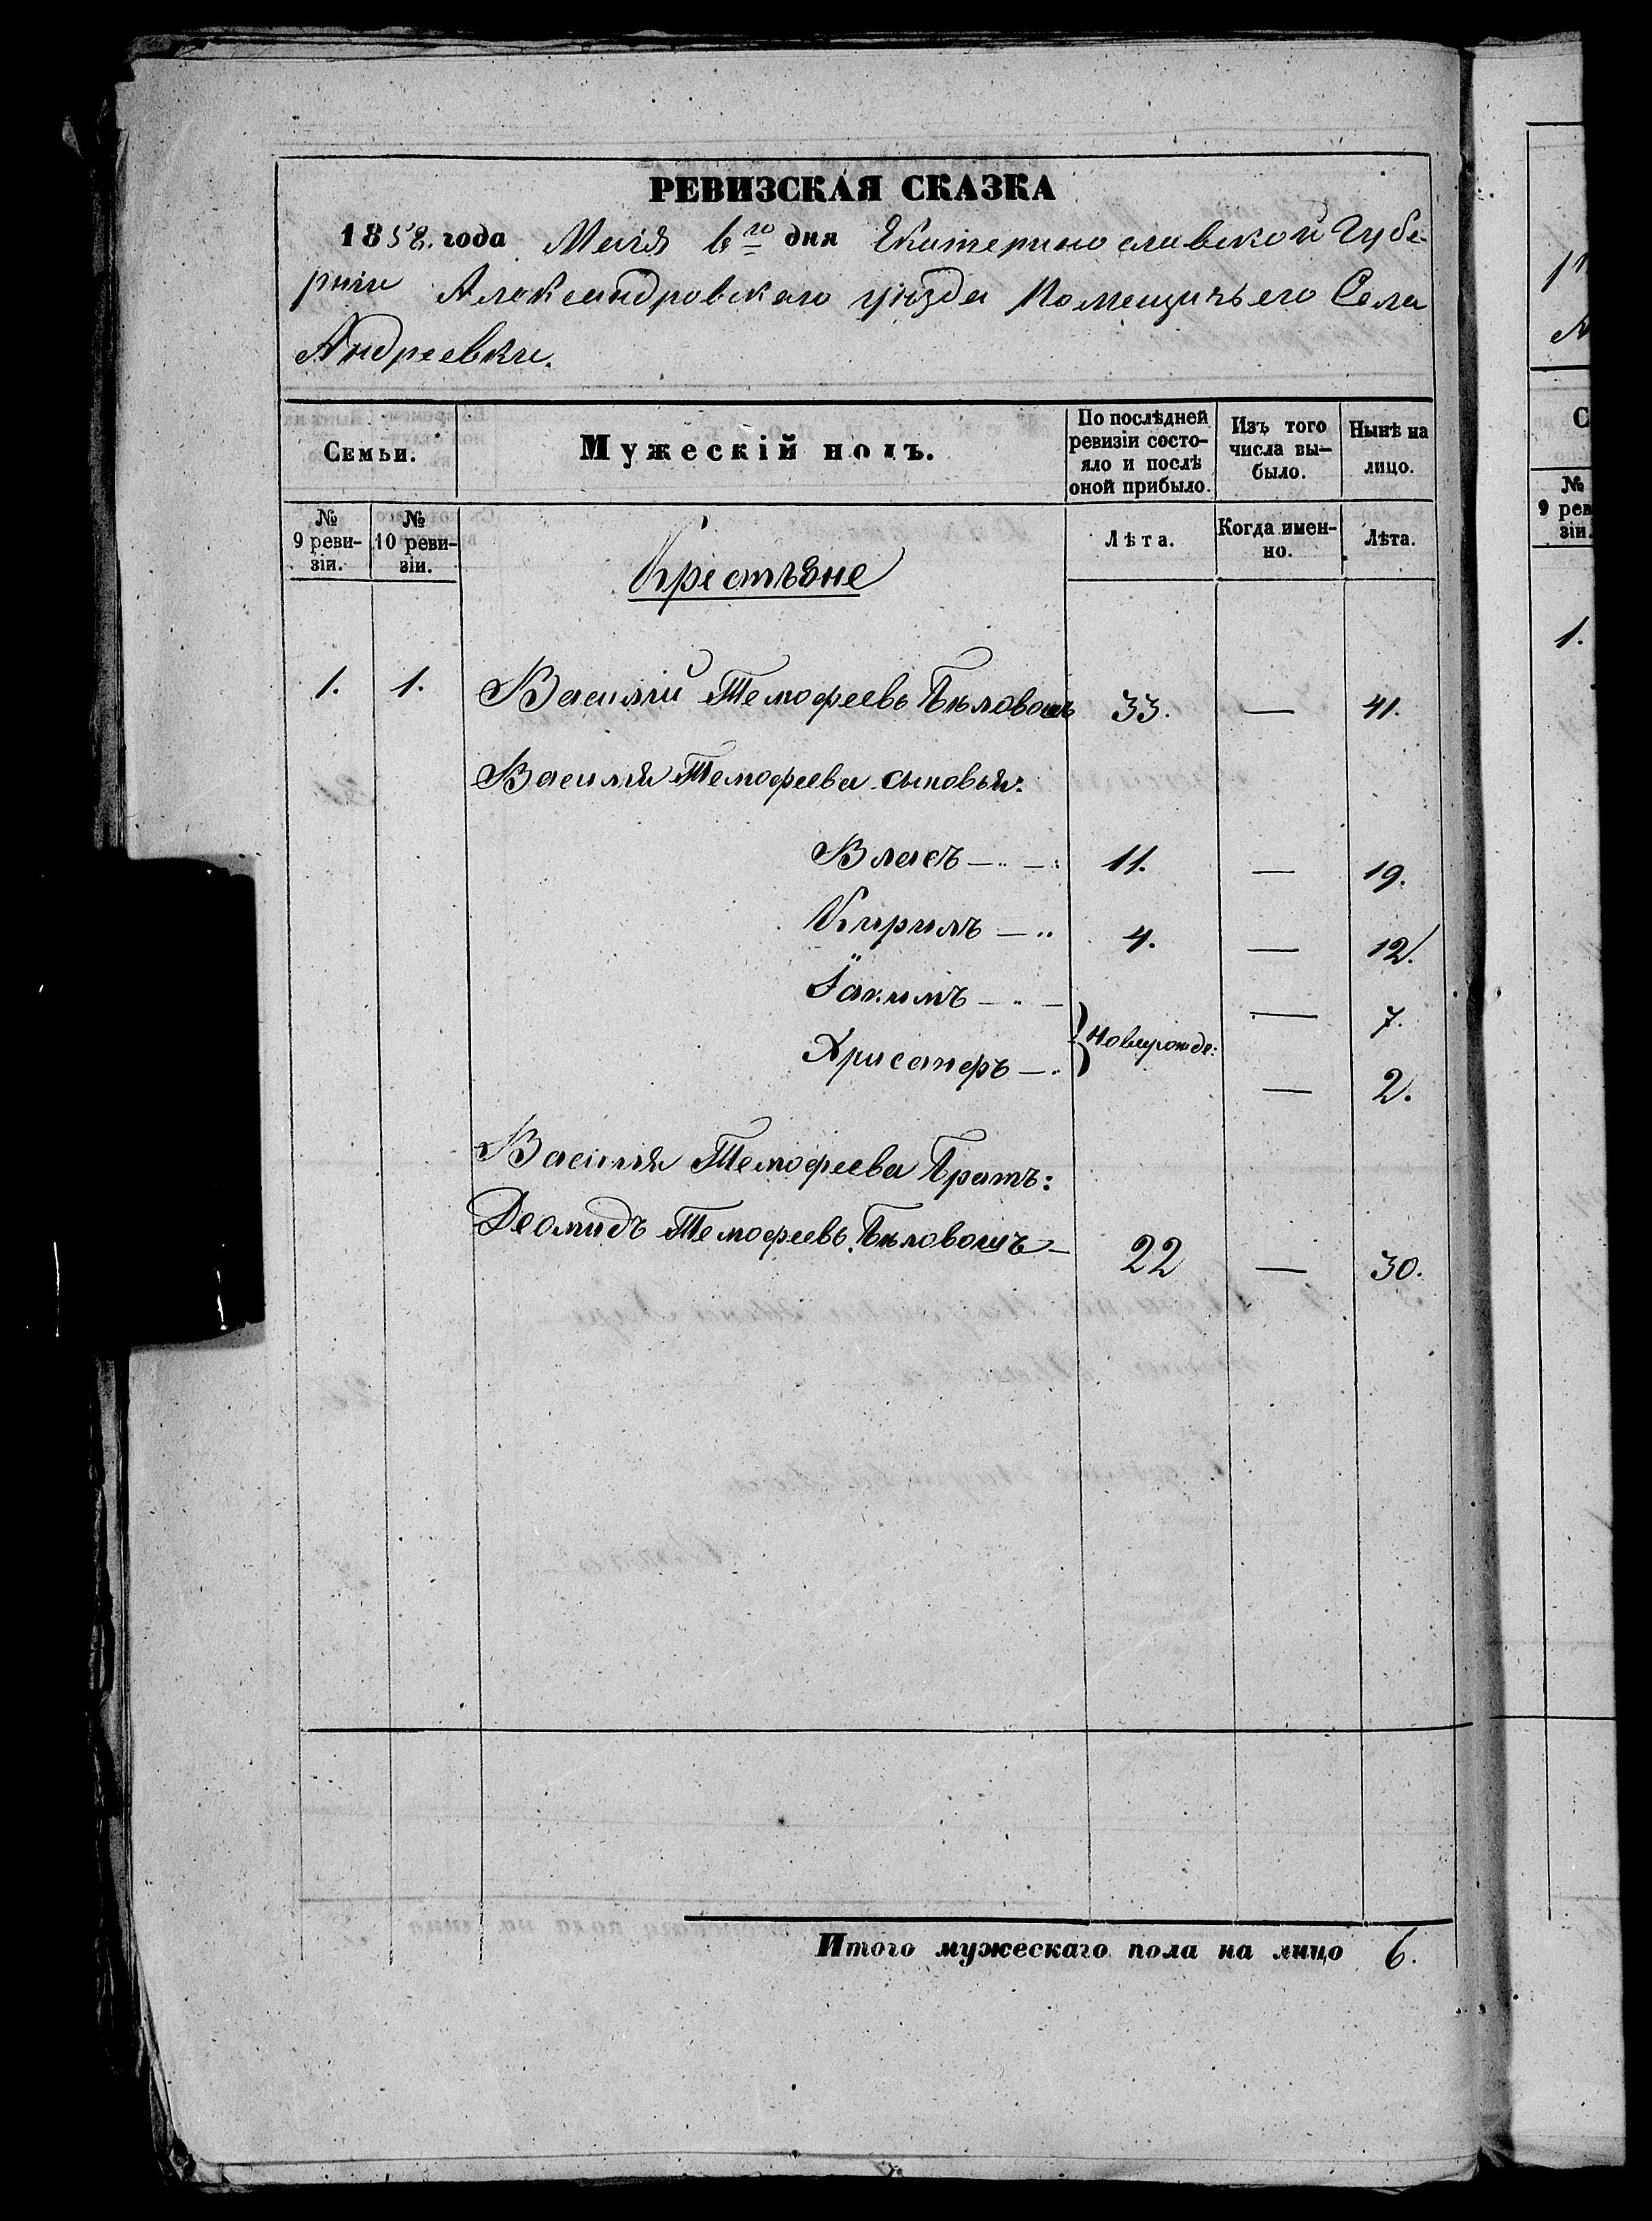 РЕВИЗСКАЯ СКАЗКА
1858. года Маія 6го дня Екатеринославской Губе-
рніи Александровскаго уѣзда Помещичьего Села
Андреевки.
Семьи.
Мужескій полъ.
По послѣдней ревизіи состо-яло и послѣ оной прибыло.
Изъ того числа вы-было.
Нынѣ на лицо.
№ 9 реви-зіи.
№ 10 реви-зіи.
Лѣта.
Когда имен-но.
Лѣта.
Крестьяне
1. 1. Василій Темофеевъ Бѣловолъ 33. — 41.
Василія Темофеева сыновья:
Власъ 11. — 19.
Кирилъ 4. — 12.
Їакимъ — 7.
Новорожде:
Хрисанфъ — 2.
Василія Темофеева Братъ:
Деомидъ Темофеевъ Бѣловолъ 22 — 30.
Итого мужескаго пола на лицо 6.
С
№
9 рев
зіи.
1.